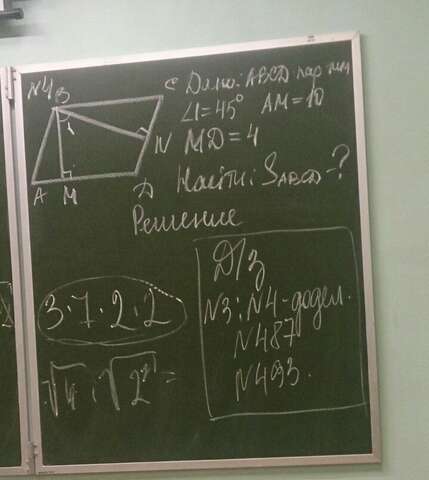 N4
B
C
Дано: ABCD пар-мм
∠1=45° AM=10
1
N
MD=4
A M
D
Найти: SABCD-?
Решение
Д/з
N3; N4-додел.
N487
N493.
3·7·2·2